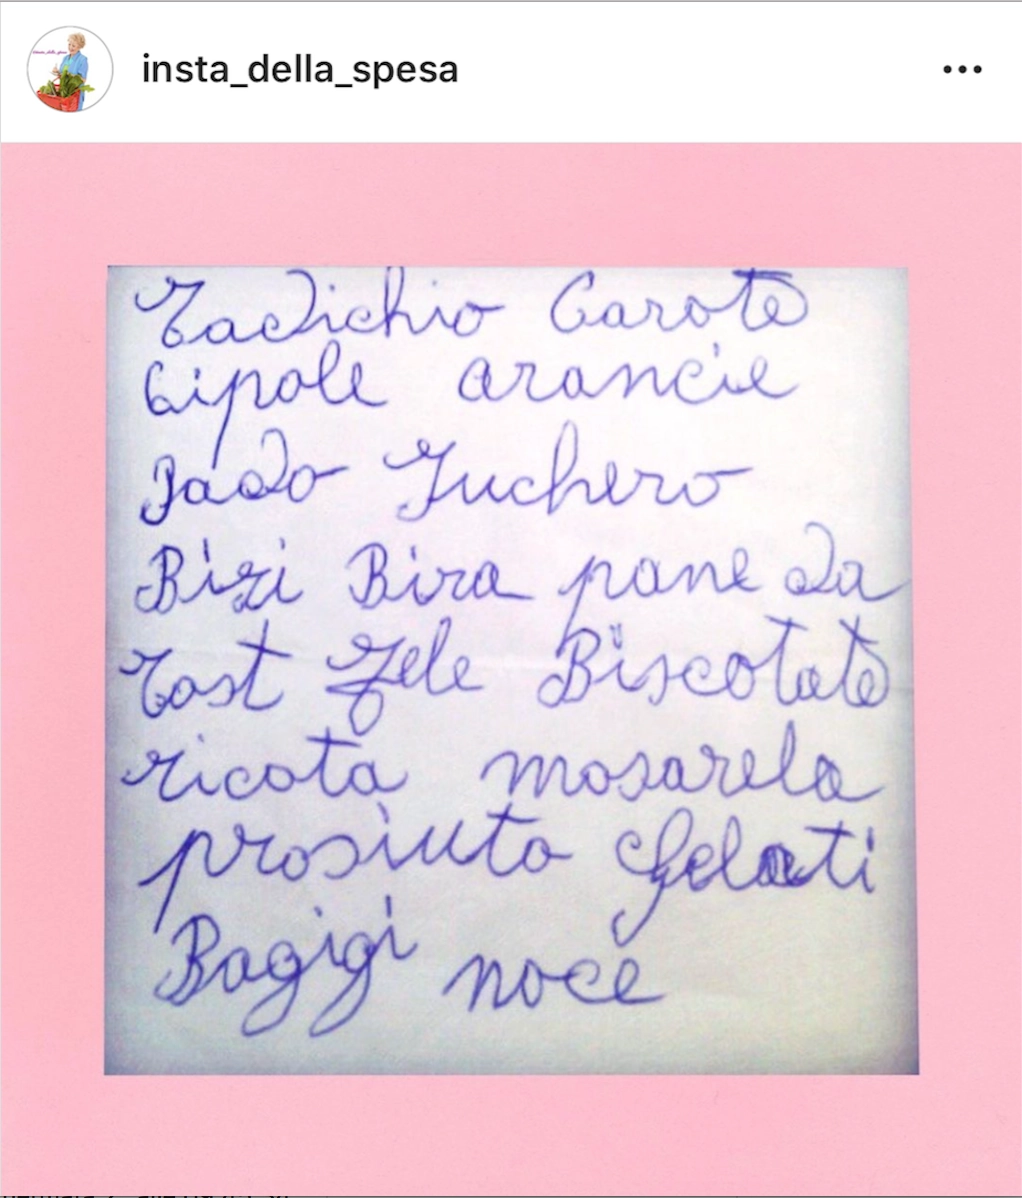 insta_della_spesa
Radichio Carote
Cipole arancie
Dado Zuchero
Bizi Bira pane da
Tost Fele Biscotate
ricota mosarela
prosiuto Gelati
Bagigi noce